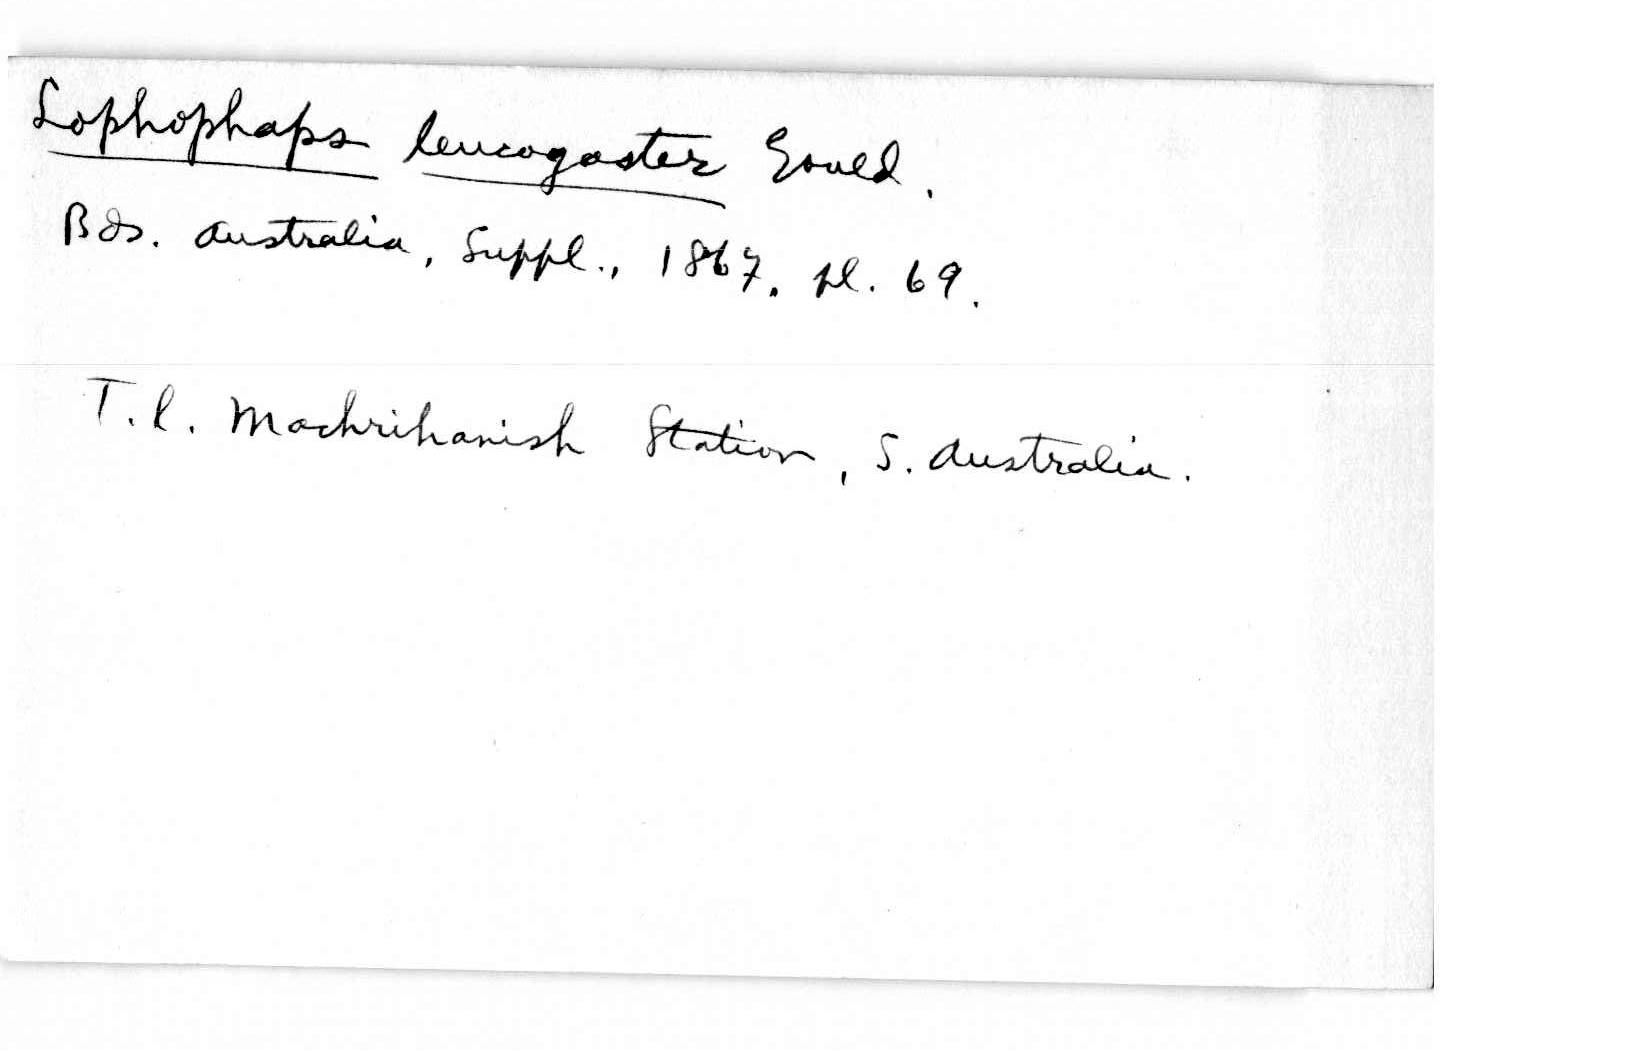 Lophophaps leucogaster Gould.
Bds. Australia, Suppl., 1867. pl. 69.
T.l. Machrihanish Station, S. Australia.